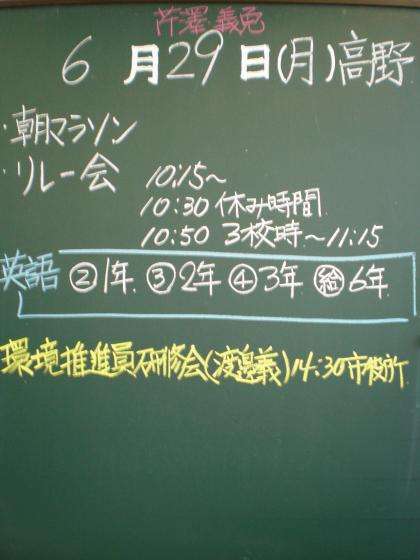 芹澤 義兎
6月29日(月)高野
・朝マラソン
・リレー会 10:15～
10:30 休み時間
10:50 3校時～11:15
英語 ②1年 ③2年 ④3年 ㊗6年
環境推進員研修会(渡邉義)14:30市役所